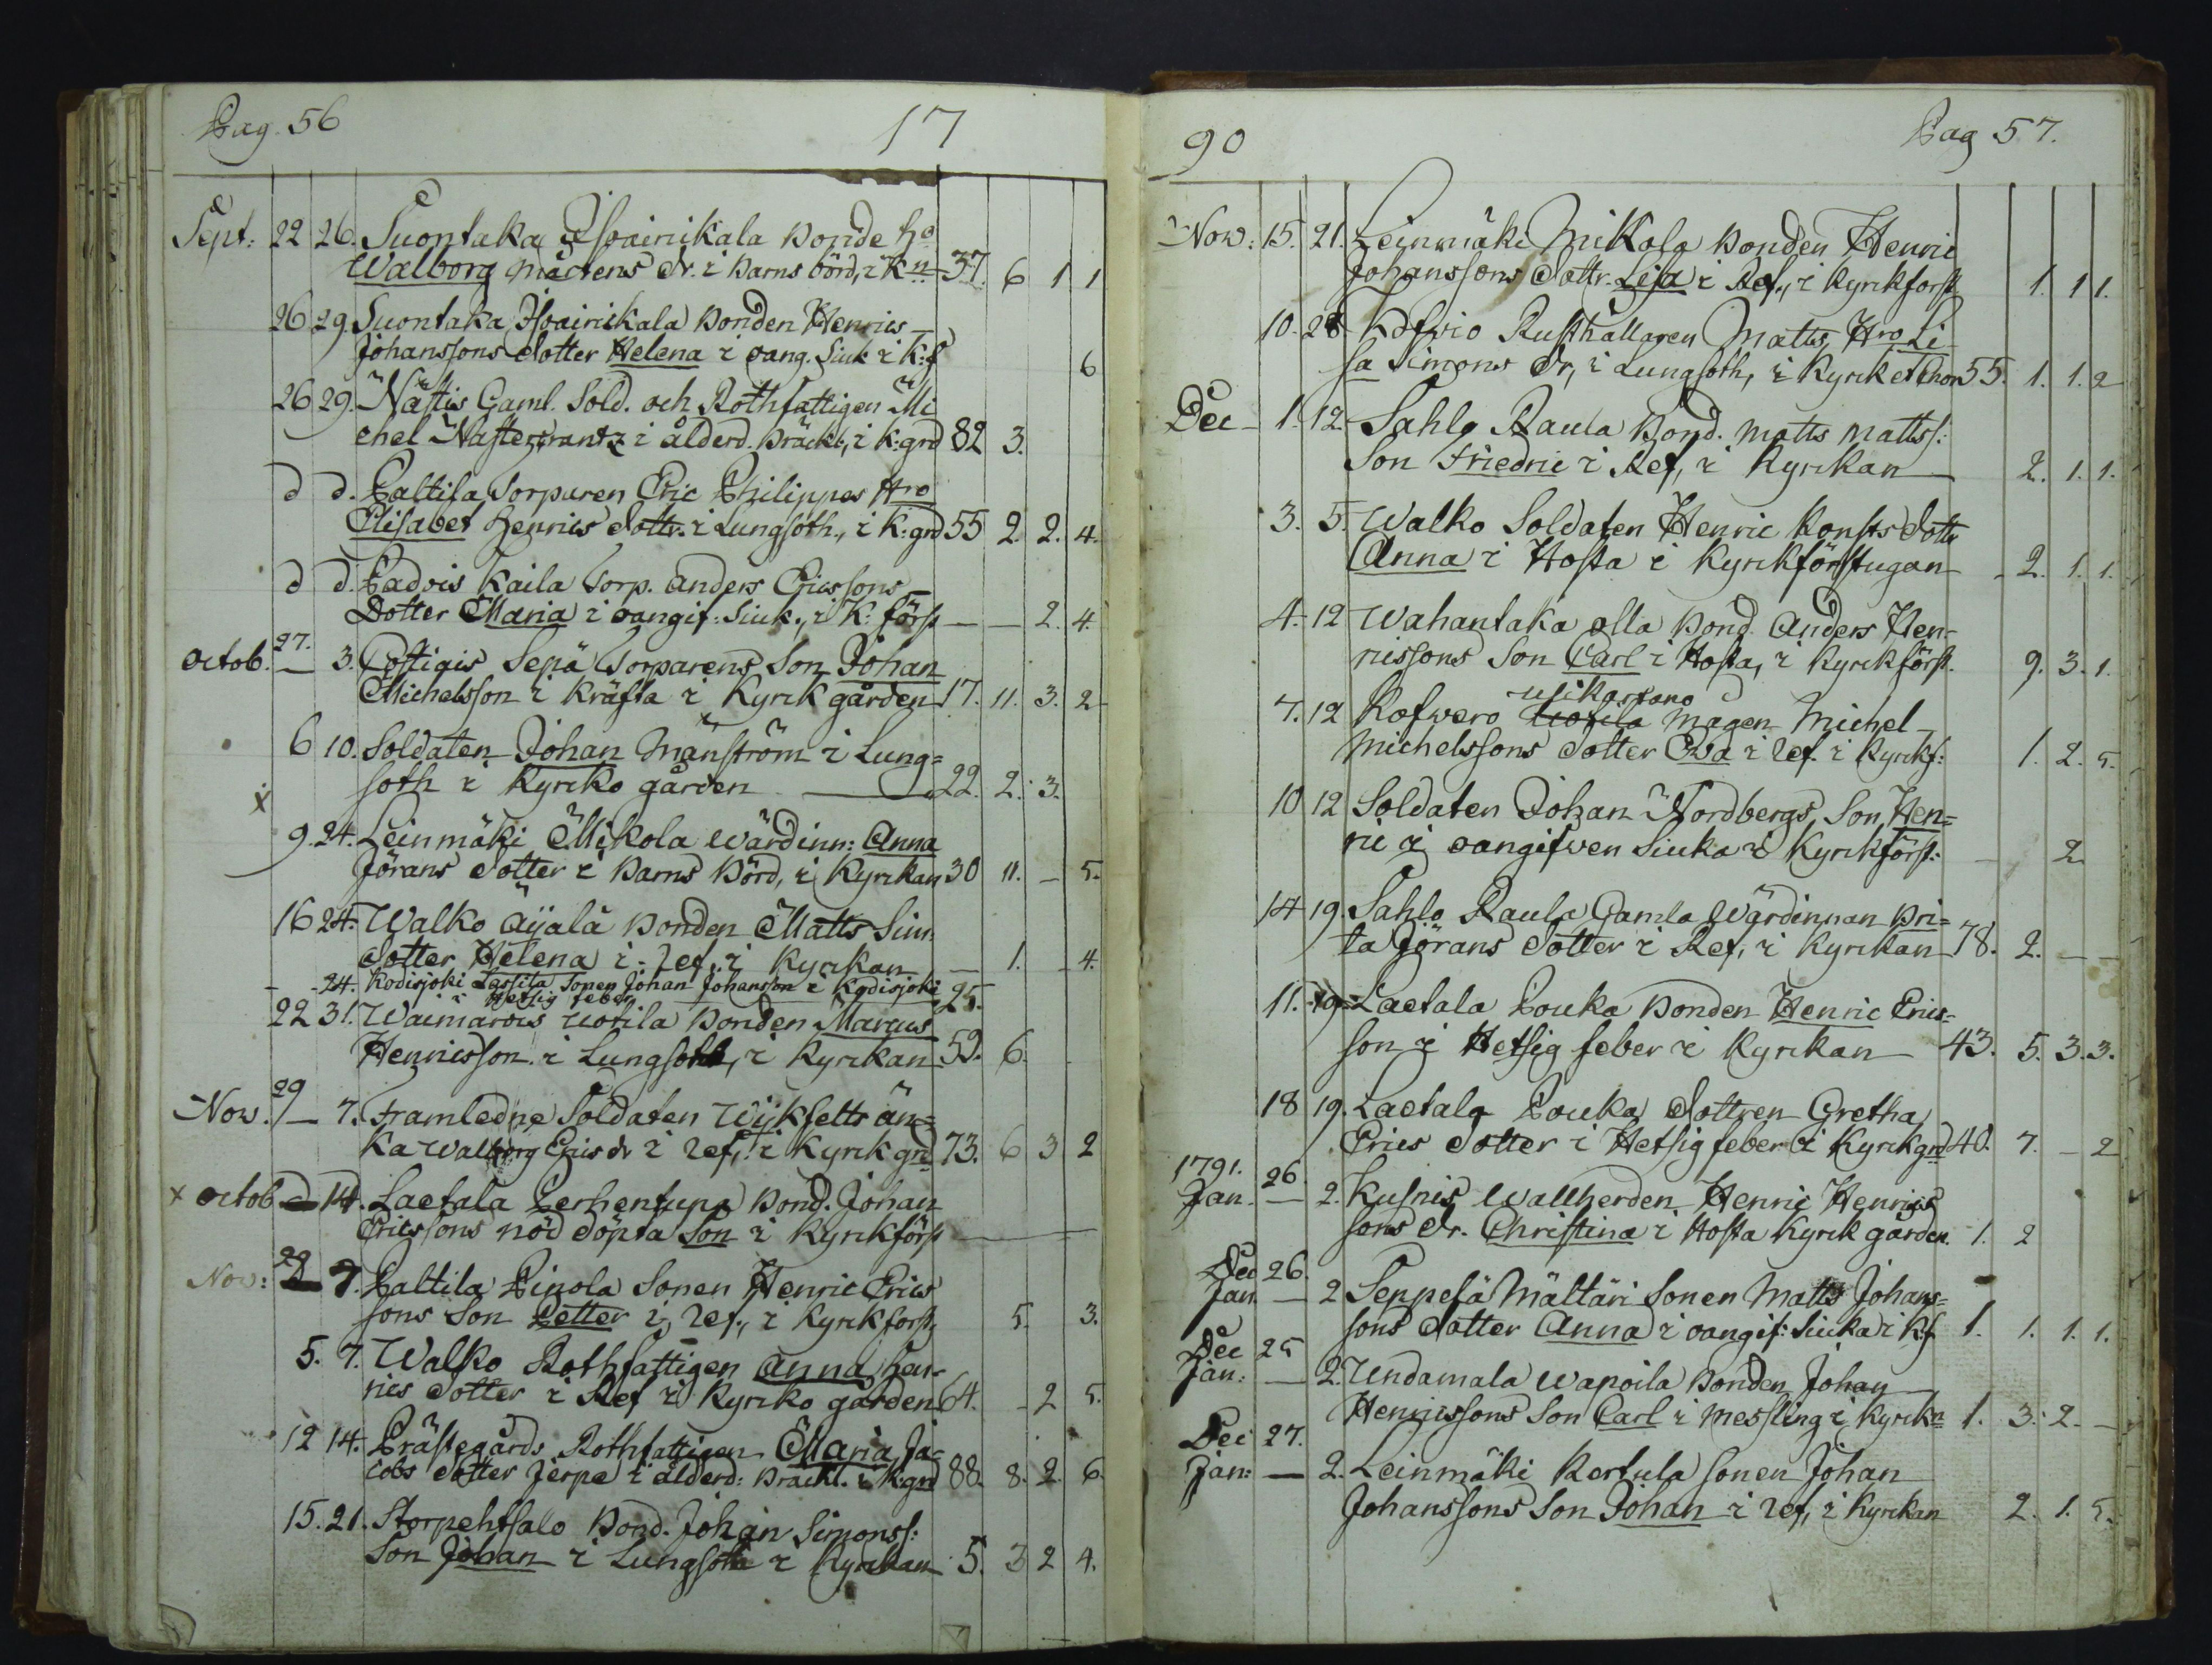 Pag. 56
17
Sept: 22 26. Suontaka Isoainikala Bonde H:o
Walborg Mårtens dr. i Barns börd, i K:n 37. 6 1 1
26 29. Suontaka Isoainikala Bonden Henrics
Johanssons dotter Helena i oang. Siuk i K:f 6
26 29. Nästis Gaml. Sold. och Rothfattigen Mi
chel i ålderd. bräckl, i K:grd 82 3.
d d. Paltila Torparen Eric Philippus H:ro
Elisabet Henrics dottr. i Lungsoth, i K:grd 55 2. 2. 4.
d d. Padois Kaila Torp. Anders Ericssons
Dotter Maria i oangif: Siuk., i K: först — — 2. 4.
Octob. 27. — 3. Costiais Sepä Torparens Son Johan
Michelsson i Kräfta i Kyrkgården 17. 11. 3. 2
6 10. Soldaten Johan Mänström i Lung=
soth i Kyrko gården 22. 2. 3.
x
9. 24. Leinmäki Mikola Wärdinn: Anna
Jörans dotter i Barns Börd, i Kyrkan 30 11. — 5.
16 24. Walko Äyälä Bonden Matts Sim:
dotter Helena i ref., i Kyrkan — 1. 4.
- - 24. Kodisjoki Lassila Sonen Johan Johansson i Kodisjoki
i Hetsig feber 25.
22 31. Waimarois Uotila Bonden Marcus
Henricsson i Lungsoth, i Kyrkan 59. 6.
Nov. 29 — 7. Framledne Soldaten Wijksells än=
ka Walborg Erics dr i ref, i Kyrkgrd 73. 6 3 2
x Octob d 14. Laetala Perhentupa Bond. Johan
Ericssons nöd döpta Son i Kyrkförst
Nov: 28 7. Paltila Pipola Sonen Henric Erics
sons Son Petter i ref., i Kyrkförst, 5. 3.
5. 7. Walko Rothfattigen Anna Hen-
rics dotter i Ref i Kyrko gården 64. - 2 5.
12 14. Prästegårds Rothfattigen Maria Ja=
cobs dotter Jerpe i ålderd: bräckl. i K:grd 88. 8. 2. 6.
15. 21. Storpehtsalo Bond. Johan Simonss:
Son Johan i Lungsoth i Kyrkan 5. 3 2 4.
90
Pag 57.
Nov: 15. 21. Leinmäki Mikola Bonden Henric
Johanssons Dottr. Lisa i Ref., i Kyrkförst 1. 1 1.
10. 28. Rusthållaren Matts H:ro Li-
sa Simons dr, i Lungsoth, i Kyrk et 55. 1. 1. 2
Dec - 1. 12. Sahlo Raula Bond. Matts Mattss:
Son Friedric i Ref, i Kyrkan 2. 1. 1.
3. 5. Walko Soldaten Henric Konsts dottr
Anna i Hosta i Kyrkförstugan - 2. 1. 1.
4. 12 Wahantaka Olla Bond Anders Hen-
ricssons Son Carl i Hosta, i Kyrkförst. 9. 3. 1.
Usikartano
7. 12 Kofwero Uotila Mågen Michel
Michelssons dotter Ewa i ref. i Kyrkf: 1. 2. 5.
10 12 Soldaten Johan Nordbergs Son Hen=
ric i oangifwen Siuka i Kyrkförst: 2
14 19. Sahlo Raula Gamla Wärdinnan Bri=
ta Jörans dotter i Ref, i Kyrkan 78. 2. — —
11. 19. Laetala Pouka Bonden Henric Erics-
son i Hetsig feber i Kyrkan 43. 5. 3. 3.
18 19. Laetala Pouka dottren Gretha
Erics dotter i Hetsig feber i Kyrkgrd 40. 7. — 2
1791. 26.
Jan. — 2. Kusnis Wallherden Henric Henrics
sons dr. Christina i Hosta Kyrk gården. 1. 2
Dec 26.
Jan — 2 Seppelä Mältäri Sonen Matts Johans=
sons dotter Anna i oangif: Siuka i K:f 1. 1. 1. 1.
Dec 25
Jan: — 2. Undamala Wapoila Bonden Johan
Henricssons Son Carl i Messling i Kyrk:n 1. 3. 2. —
Dec 27.
Jan: — 2. Leinmäki Kertula Sonen Johan
Johanssons Son Johan i ref, i Kyrkan 2. 1. 5.